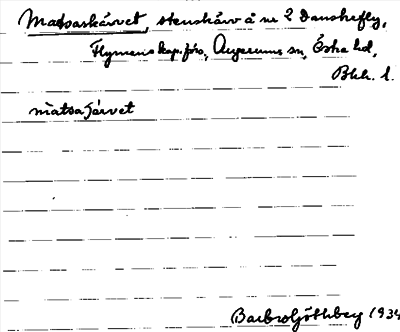 Matsaskärvet, stenskärv å nr 2 Danskefly,
Flymens kap.förs, Augerums sn, Östra hd,
Blek. l.
matsajärvet
Barbro Göthberg 1934